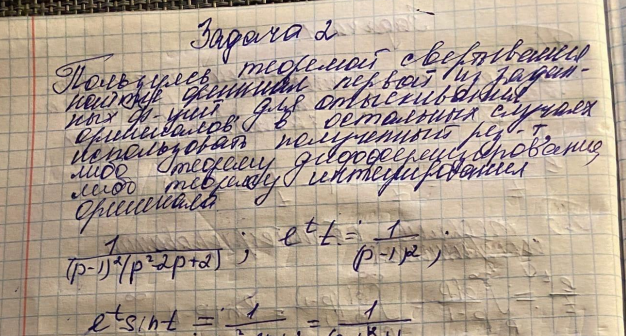 Задача 2
Пользуясь теоремой свертывания
найти оригинал первой из задан-
ных ф-ций; для отыскивания
оригиналов в остальных случаях
использовать полученный рез-т,
либо теорему дифференцирование,
либо теорему интегрирования
оригинала
1/((p-1)²(p²-2p+2)); eᵗt = 1/(p-1)²;
eᵗsint = 1/ = 1/